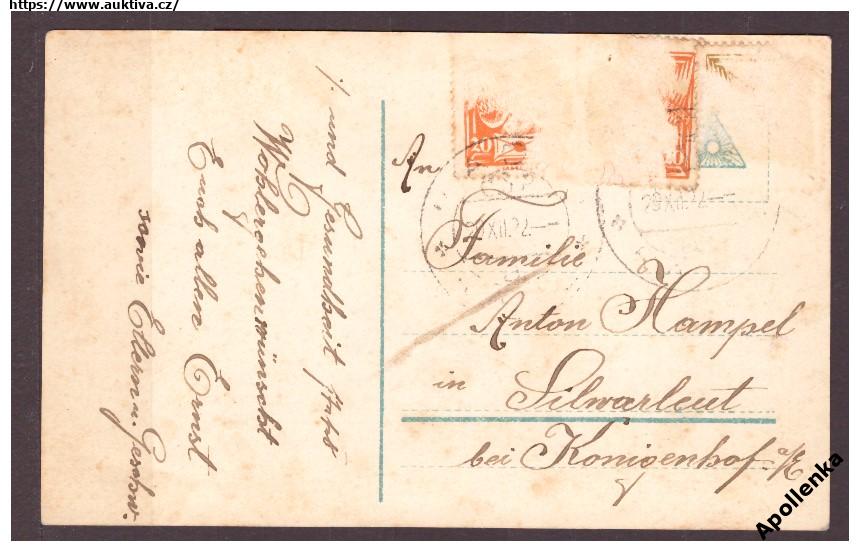 https://www.auktiva.cz/
j. und Gesundheit stets
Wohlergehen wünscht
Euch allen Ernst
sowie Eltern u. Geschw.
An
Familie
Anton Hampel
in
Silwarleut
bei Königenhof a/E
20
29.XII.22.—
Apollenka